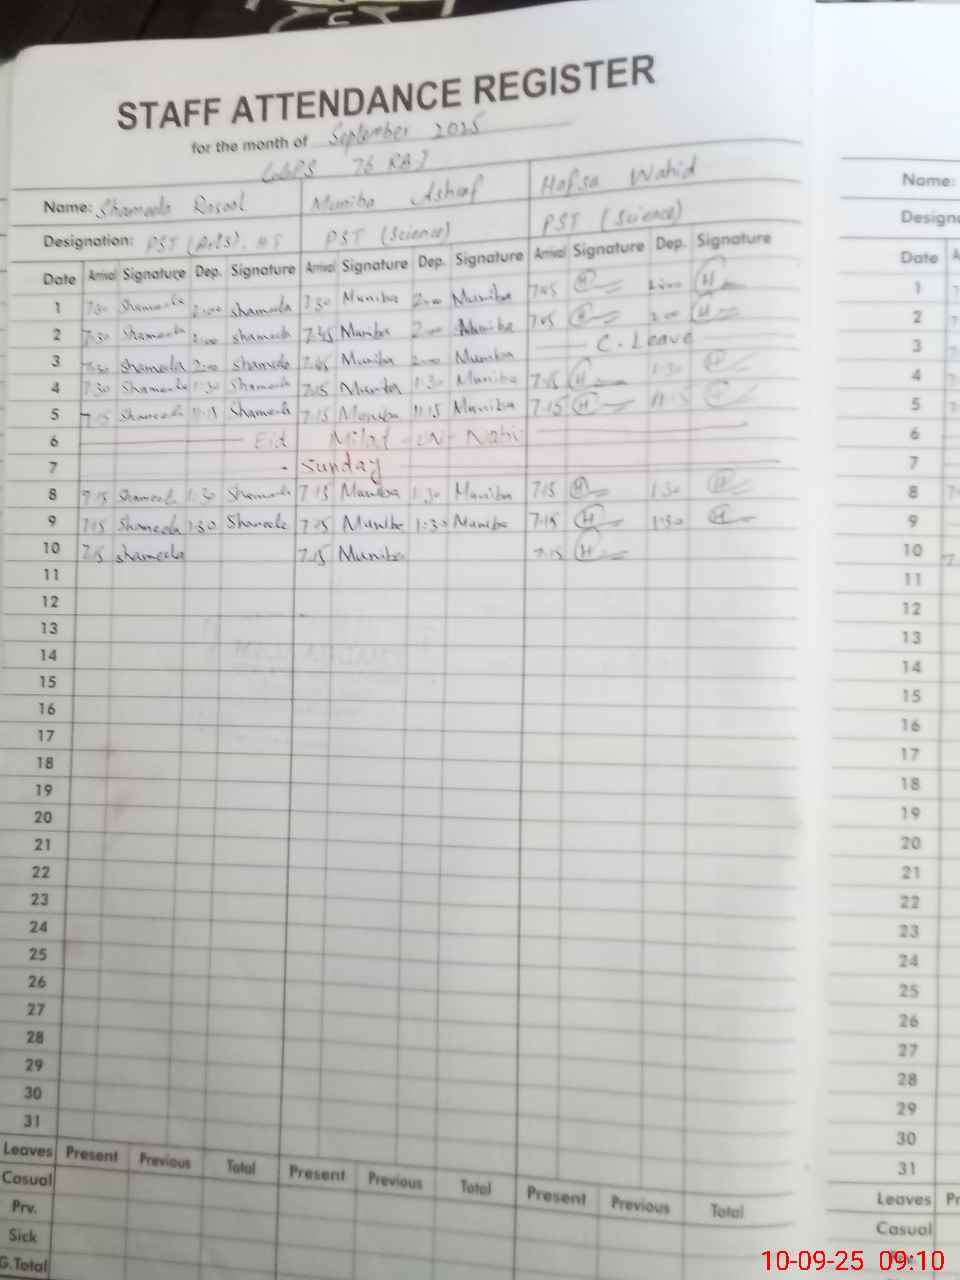 STAFF ATTENDANCE REGISTER
for the month of September 2025
GGPS 76 RB-I
Name: Shameela Rasool Muniba Ashraf Hafsa Wahid
Designation: PST (Arts), PST (Science) PST (Science)
Date Arrival Signature Dep. Signature Arrival Signature Dep. Signature Arrival Signature Dep. Signature
1 7:30 Shameela 2:00 shameela 7:30 Muniba 2:00 Muniba 7:45 H 2:00 H
2 7:30 Shameela 2:00 shameela 7:45 Muniba 2:00 Muniba 7:45 H 2:00 H
3 7:30 Shameela 2:00 Shameela 7:45 Muniba 2:00 Muniba C. Leave
4 7:30 Shameela 1:30 Shameela 7:15 Muniba 1:30 Muniba 7:45 H 1:30 H
5 7:15 Shameela 11:15 Shameela 7:15 Muniba 11:15 Muniba 7:15 H 11:15 H
6 Eid Milad-un-Nabi
7 - Sunday
8 7:15 Shameela 1:30 Shameela 7:15 Muniba 1:30 Muniba 7:15 H 1:30 H
9 7:15 Shameela 1:30 Shameela 7:15 Muniba 1:30 Muniba 7:15 H 1:30 H
10 7:15 shameela 7:15 Muniba 7:15 H
11
12
13
14
15
16
17
18
19
20
21
22
23
24
25
26
27
28
29
30
31
Leaves Present Previous Total Present Previous Total Present Previous Total
Casual
Prv.
Sick
G.Total
Name:
Date
1
2
3
4
5
6
7
8
9
10
11
12
13
14
15
16
17
18
19
20
21
22
23
24
25
26
27
28
29
30
31
Leaves
Casual
10-09-25 09:10